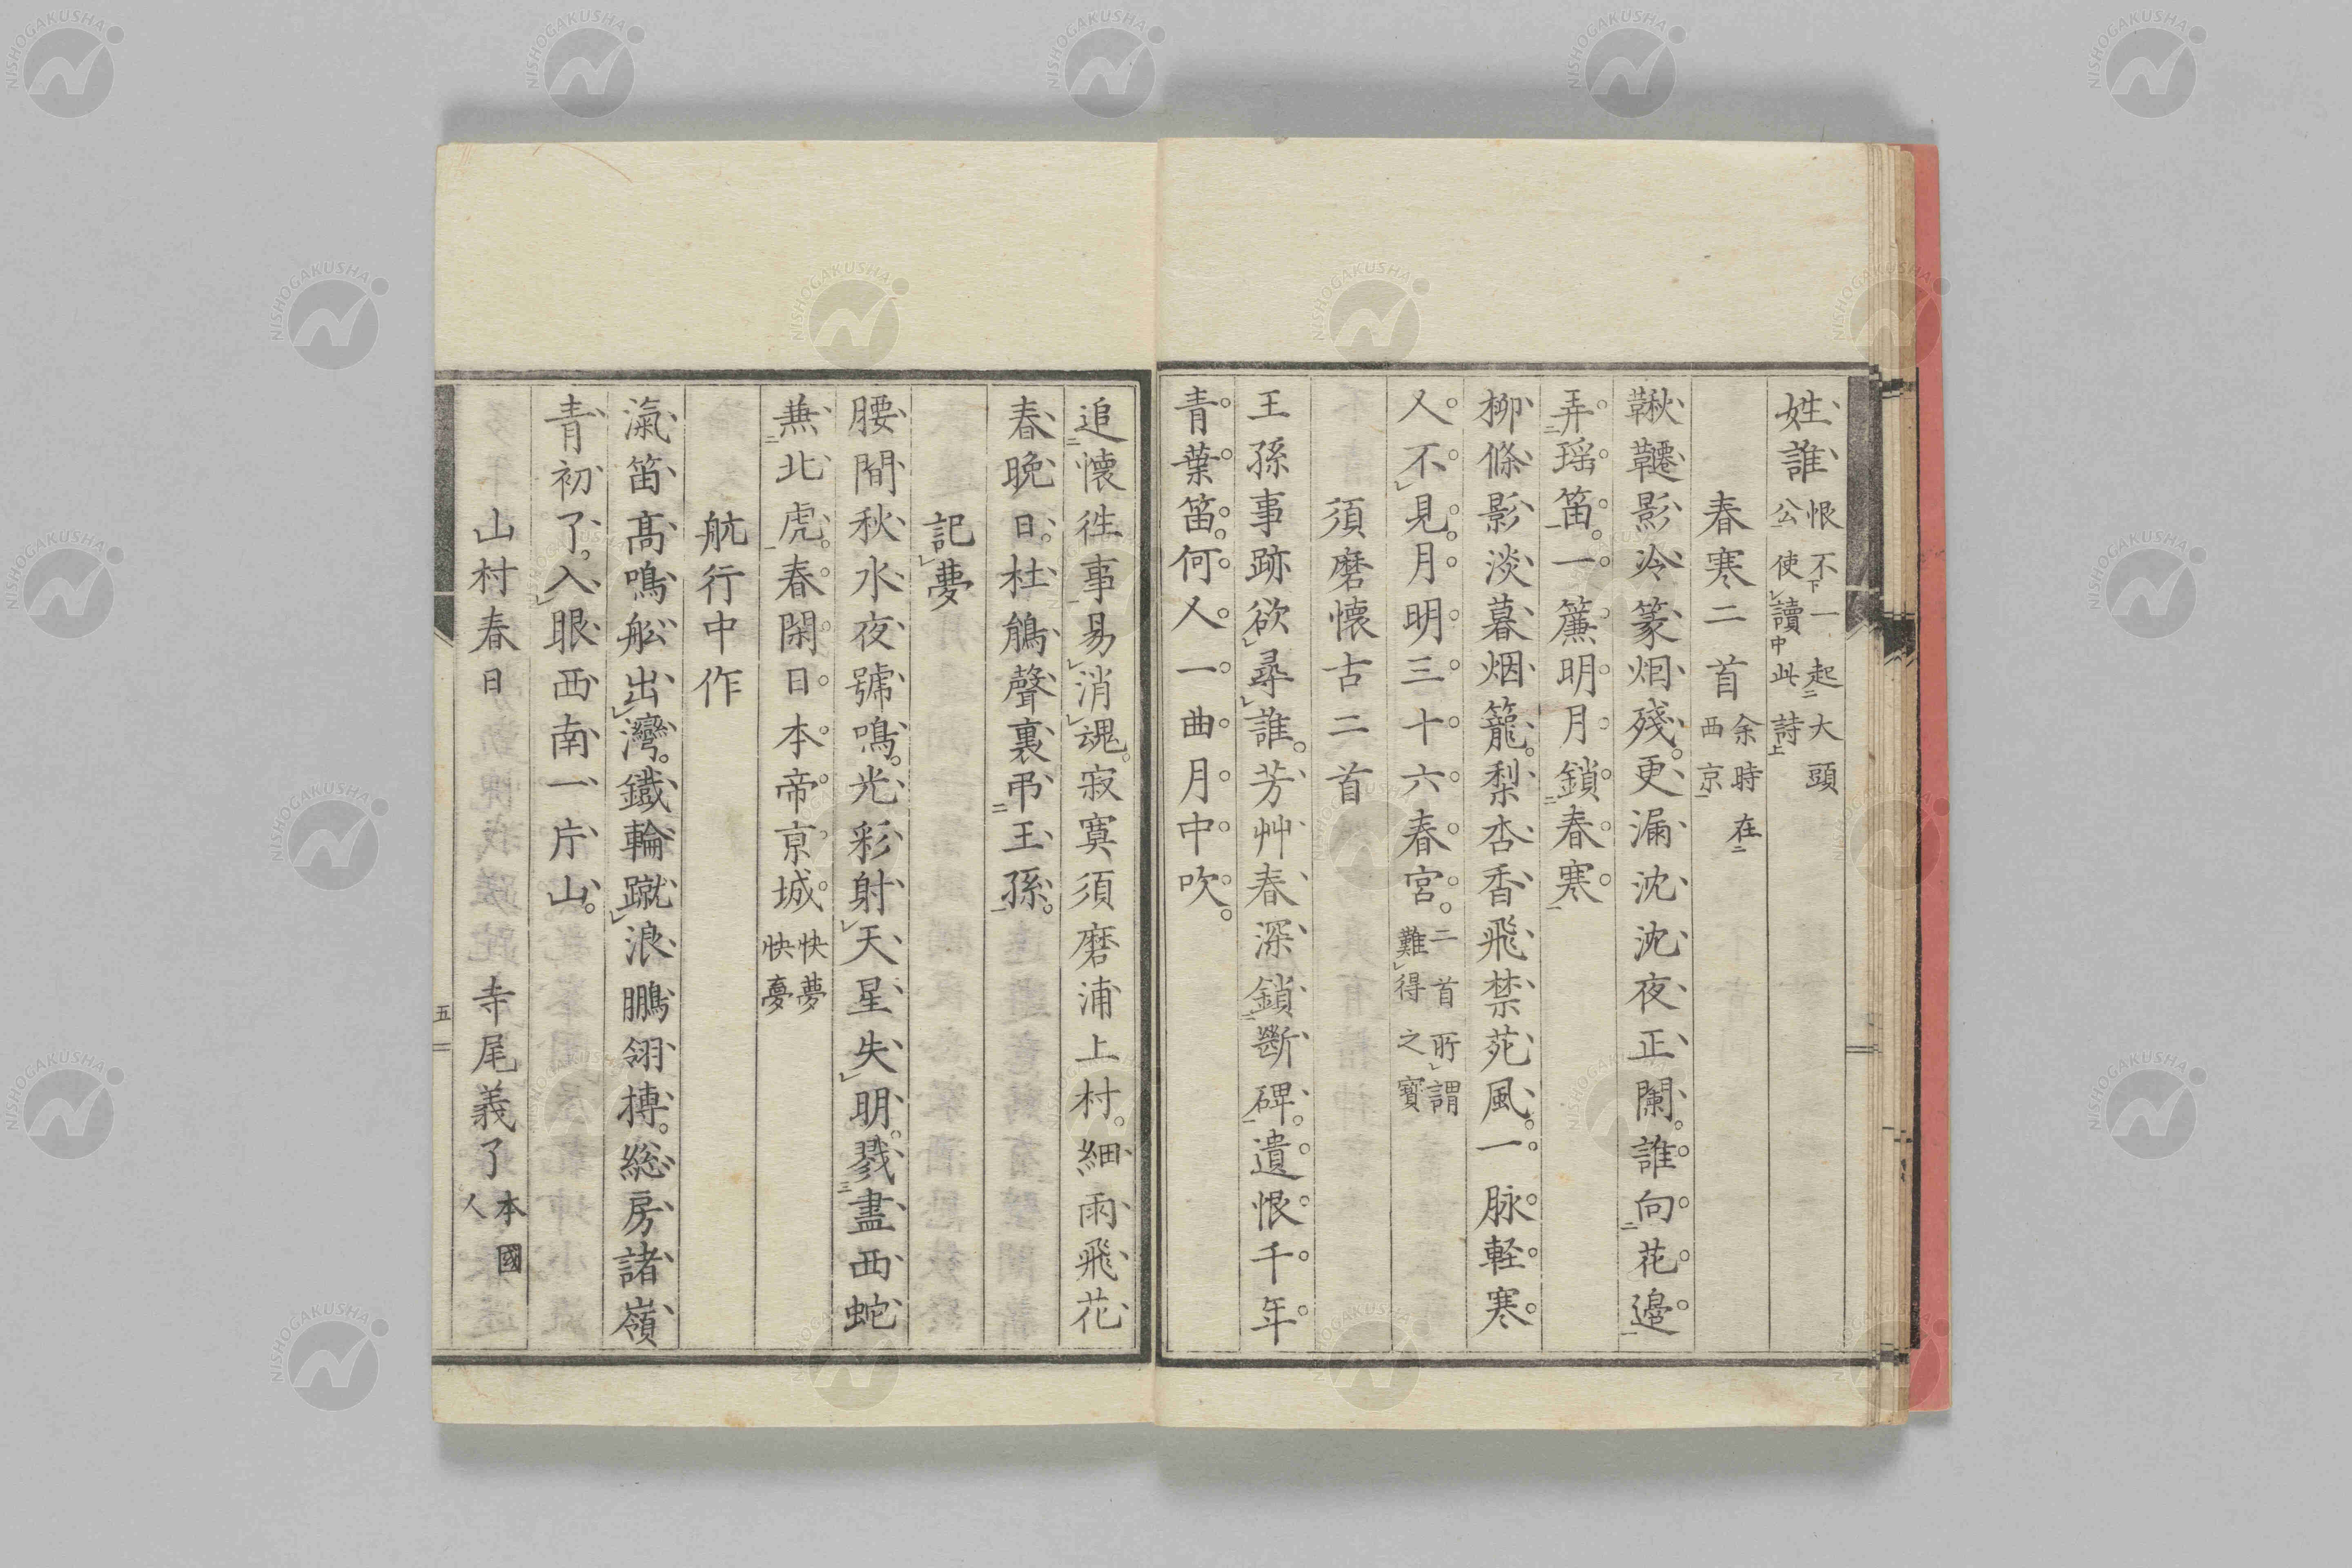 姓誰 恨不一起大頭公使讀此詩
春寒二首 余時在西京
鞦韆影冷篆烟殘。更漏沈沈夜正闌。誰向花邊
弄瑶笛。一簾明月鎖春寒。
柳條影淡暮烟籠。梨杏香飛禁苑風。一脉軽寒
人不見。月明三十六春宮。 二首所謂難得之寶
須磨懷古二首
王孫事跡欲尋誰。芳艸春深鎖斷碑。遺恨千年
青葉笛。何人一曲月中吹。
追懷徃事易消魂。寂寞須磨浦上村。細雨飛花
春晩日。杜鵑聲裏弔王孫。
記夢
腰間秋水夜號鳴。光彩射天星失明。戮盡西蛇
兼北虎。春閑日本帝京城 快夢快夢
航行中作
氣笛高鳴舩出灣。鐵輪蹴浪鵬翎摶。総房諸嶺
青初了。入眼西南一片山。
山村春日 寺尾義了 本國人
五
NISHOGAKUSHA